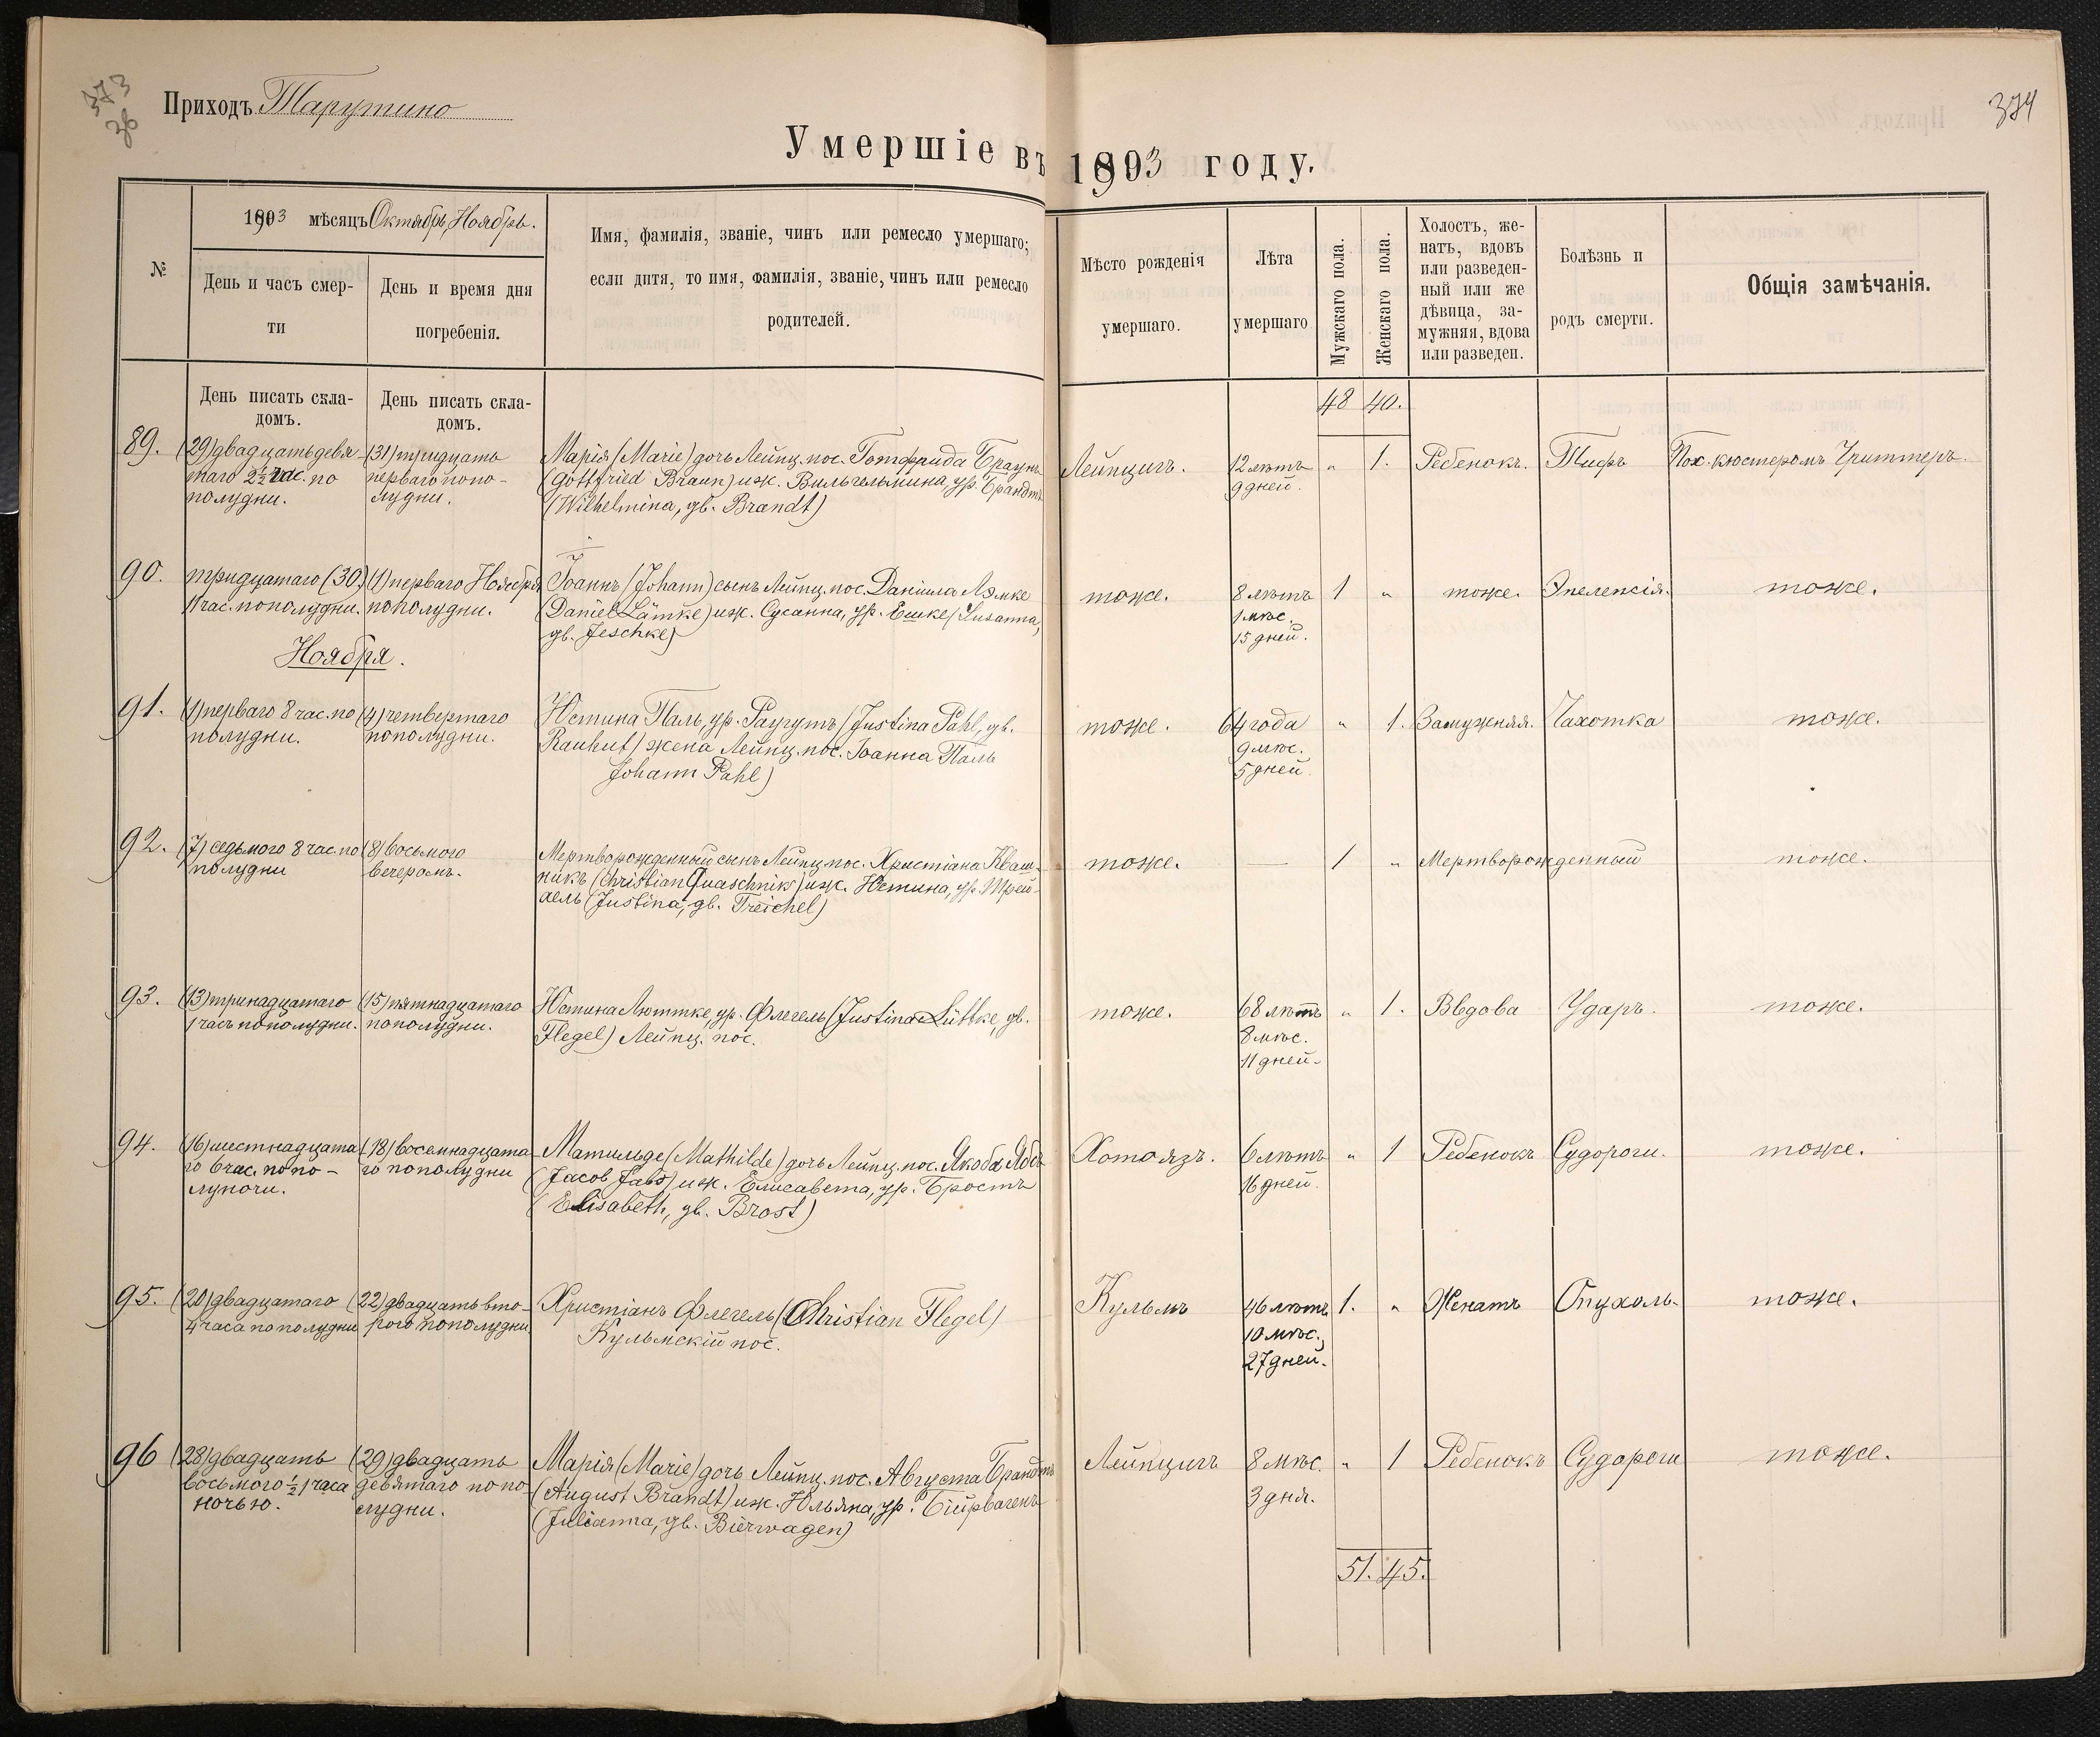 373
36
Приходъ Тарутино
374
Умершіе въ 1893 году.
№
1893 мѣсяцъ Октябрь, Ноябрь.
День и часъ смер-
ти
День и время дня
погребенія.
Имя, фамилія, званіе, чинъ или ремесло умершаго;
если дитя, то имя, фамилія, званіе, чинъ или ремесло
родителей.
Мѣсто рожденія
умершаго.
Лѣта
умершаго
Мужскаго пола.
Женскаго пола.
Холостъ, же-
натъ, вдовъ
или разведен-
ный или же
дѣвица, за-
мужняя, вдова
или разведен.
Болѣзнь и
родъ смерти.
Общія замѣчанія.
День писать скла-
домъ.
День писать скла-
домъ.
48 40.
89.
(29) двадцать девя-
таго 2½ час. по
полудни.
(31) тридцать
перваго попо-
лудни.
Марія (Marie) дочь Лейпц. пос. Готфрида Браунъ
(Gottfried Braun) и ж. Вильгельмина, ур. Брандтъ
(Wilhelmina, gb. Brandt)
Лейпцигъ.
12 лѣтъ
9 дней.
" 1.
Ребенокъ.
Тифъ
Пох. кюстеромъ Гриттеръ.
90.
тридцатаго (30)
11 час. пополудни.
(1) перваго Ноября
пополудни.
Іоаннъ (Johann) сынъ Лейпц. пос. Даніила Лэмке
(Daniel Lämke) и ж. Сусанна, ур. Ешке (Susanna,
gb. Jeschke)
тоже.
8 лѣтъ
1 мѣс.
15 дней.
1 "
тоже.
Эпелепсія.
тоже.
Ноября.
91.
(1) перваго 8 час. по
полудни.
(4) четвертаго
пополудни.
Юстина Паль, ур. Раугутъ (Justina Pahl, gb.
Rauhut) жена Лейпц. пос. Іоанна Паль
Johann Pahl)
тоже.
64 года
9 мѣс.
5 дней.
" 1.
Замужняя.
Чахотка
тоже.
92.
(7) седьмого 8 час. по
полудни
(8) восьмого
вечеромъ.
Мертворожденный сынъ Лейпц. пос. Христіана Кваш-
никъ (Christian Quaschnik) и ж. Юстина, ур. Трей-
хель (Justina, gb. Treichel)
тоже.
—
1 "
Мертворожденный
тоже.
93.
(13) тринадцатаго
1 часъ пополудни.
(15) пятнадцатаго
пополудни.
Юстина Люттке, ур. Флегель (Justina Lüttke, gb.
Flegel) Лейпц. пос.
тоже.
68 лѣтъ
8 мѣс.
11 дней.
" 1.
Ввдова
Ударъ.
тоже.
94.
(16) шестнадцата
го 6 час. по по-
луночи.
(18) восемнадцата-
го пополудни
Матильде (Mathilde) дочь Лейпц. пос. Якоба Ябсъ
(Jacob Jabs) и ж. Елисавета, ур. Бростъ
(Elisabeth, gb. Brost)
Хотоязъ.
6 лѣтъ
16 дней.
" 1
Ребенокъ
Судороги.
тоже.
95.
(20) двадцатаго
4 часа пополудни
(22) двадцать вто-
рого пополудни.
Христіанъ Флегель (Christian Flegel)
Кульмскій пос.
Кульмъ
46 лѣтъ
10 мѣс.,
27 дней.
1. "
Женатъ
Опухоль.
тоже.
96
(28) двадцать
восьмого ½ 1 часа
ночью.
(29) двадцать
девятаго попо-
лудни.
Марія (Marie) дочь Лейпц. пос. Августа Брандтъ
(August Brandt) и ж. Юльяна, ур. Бийрвагенъ
(Julianna, gb. Bierwagen)
Лейпцигъ
8 мѣс.
3 дня.
" 1
Ребенокъ
Судороги
тоже.
51. 45.